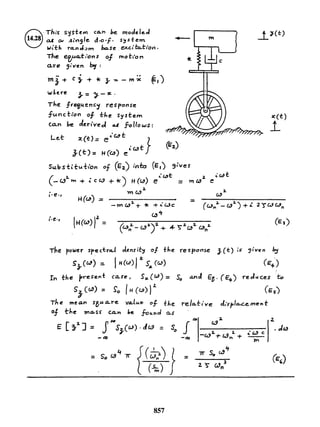 14.28
This system can be modeled
as a single d.o.f. system
with random base excitation.
The equations of motion
are given by :
m z̈ + c ż + k z = - m ẍ (E₁)
where z = y - x .
The frequency response
function of the system
can be derived as follows:
Let x(t) = e^{iωt}
z(t) = H(ω) e^{iωt} } (E₂)
m
k
c
y(t)
x(t)
Substitution of (E₂) into (E₁) gives
(-ω² m + i c ω + k) H(ω) e^{iωt} = m ω² e^{iωt}
i.e., H(ω) = m ω² / (- m ω² + k + i ω c) = ω² / ((ωₙ² - ω²) + i 2 ζ ω ωₙ)
i.e., |H(ω)|² = ω⁴ / ((ωₙ² - ω²)² + 4 ζ² ω² ωₙ²) (E₃)
The power spectral density of the response z(t) is given by
S_z(ω) = |H(ω)|² Sₓ(ω) (E₄)
In the present case, Sₓ(ω) = S₀ and Eq. (E₄) reduces to
S_z(ω) = S₀ |H(ω)|² (E₅)
The mean square value of the relative displacement
of the mass can be found as
E [z²] = ∫_{-∞}^{∞} S_z(ω) · dω = S₀ ∫_{-∞}^{∞} | ω² / (-ω² + ωₙ² + i ω c / m) |² · dω
= S₀ ω⁴ π { (1/ωₙ²) / (c/m) } = π S₀ ω⁴ / (2 ζ ωₙ³) (E₆)
857